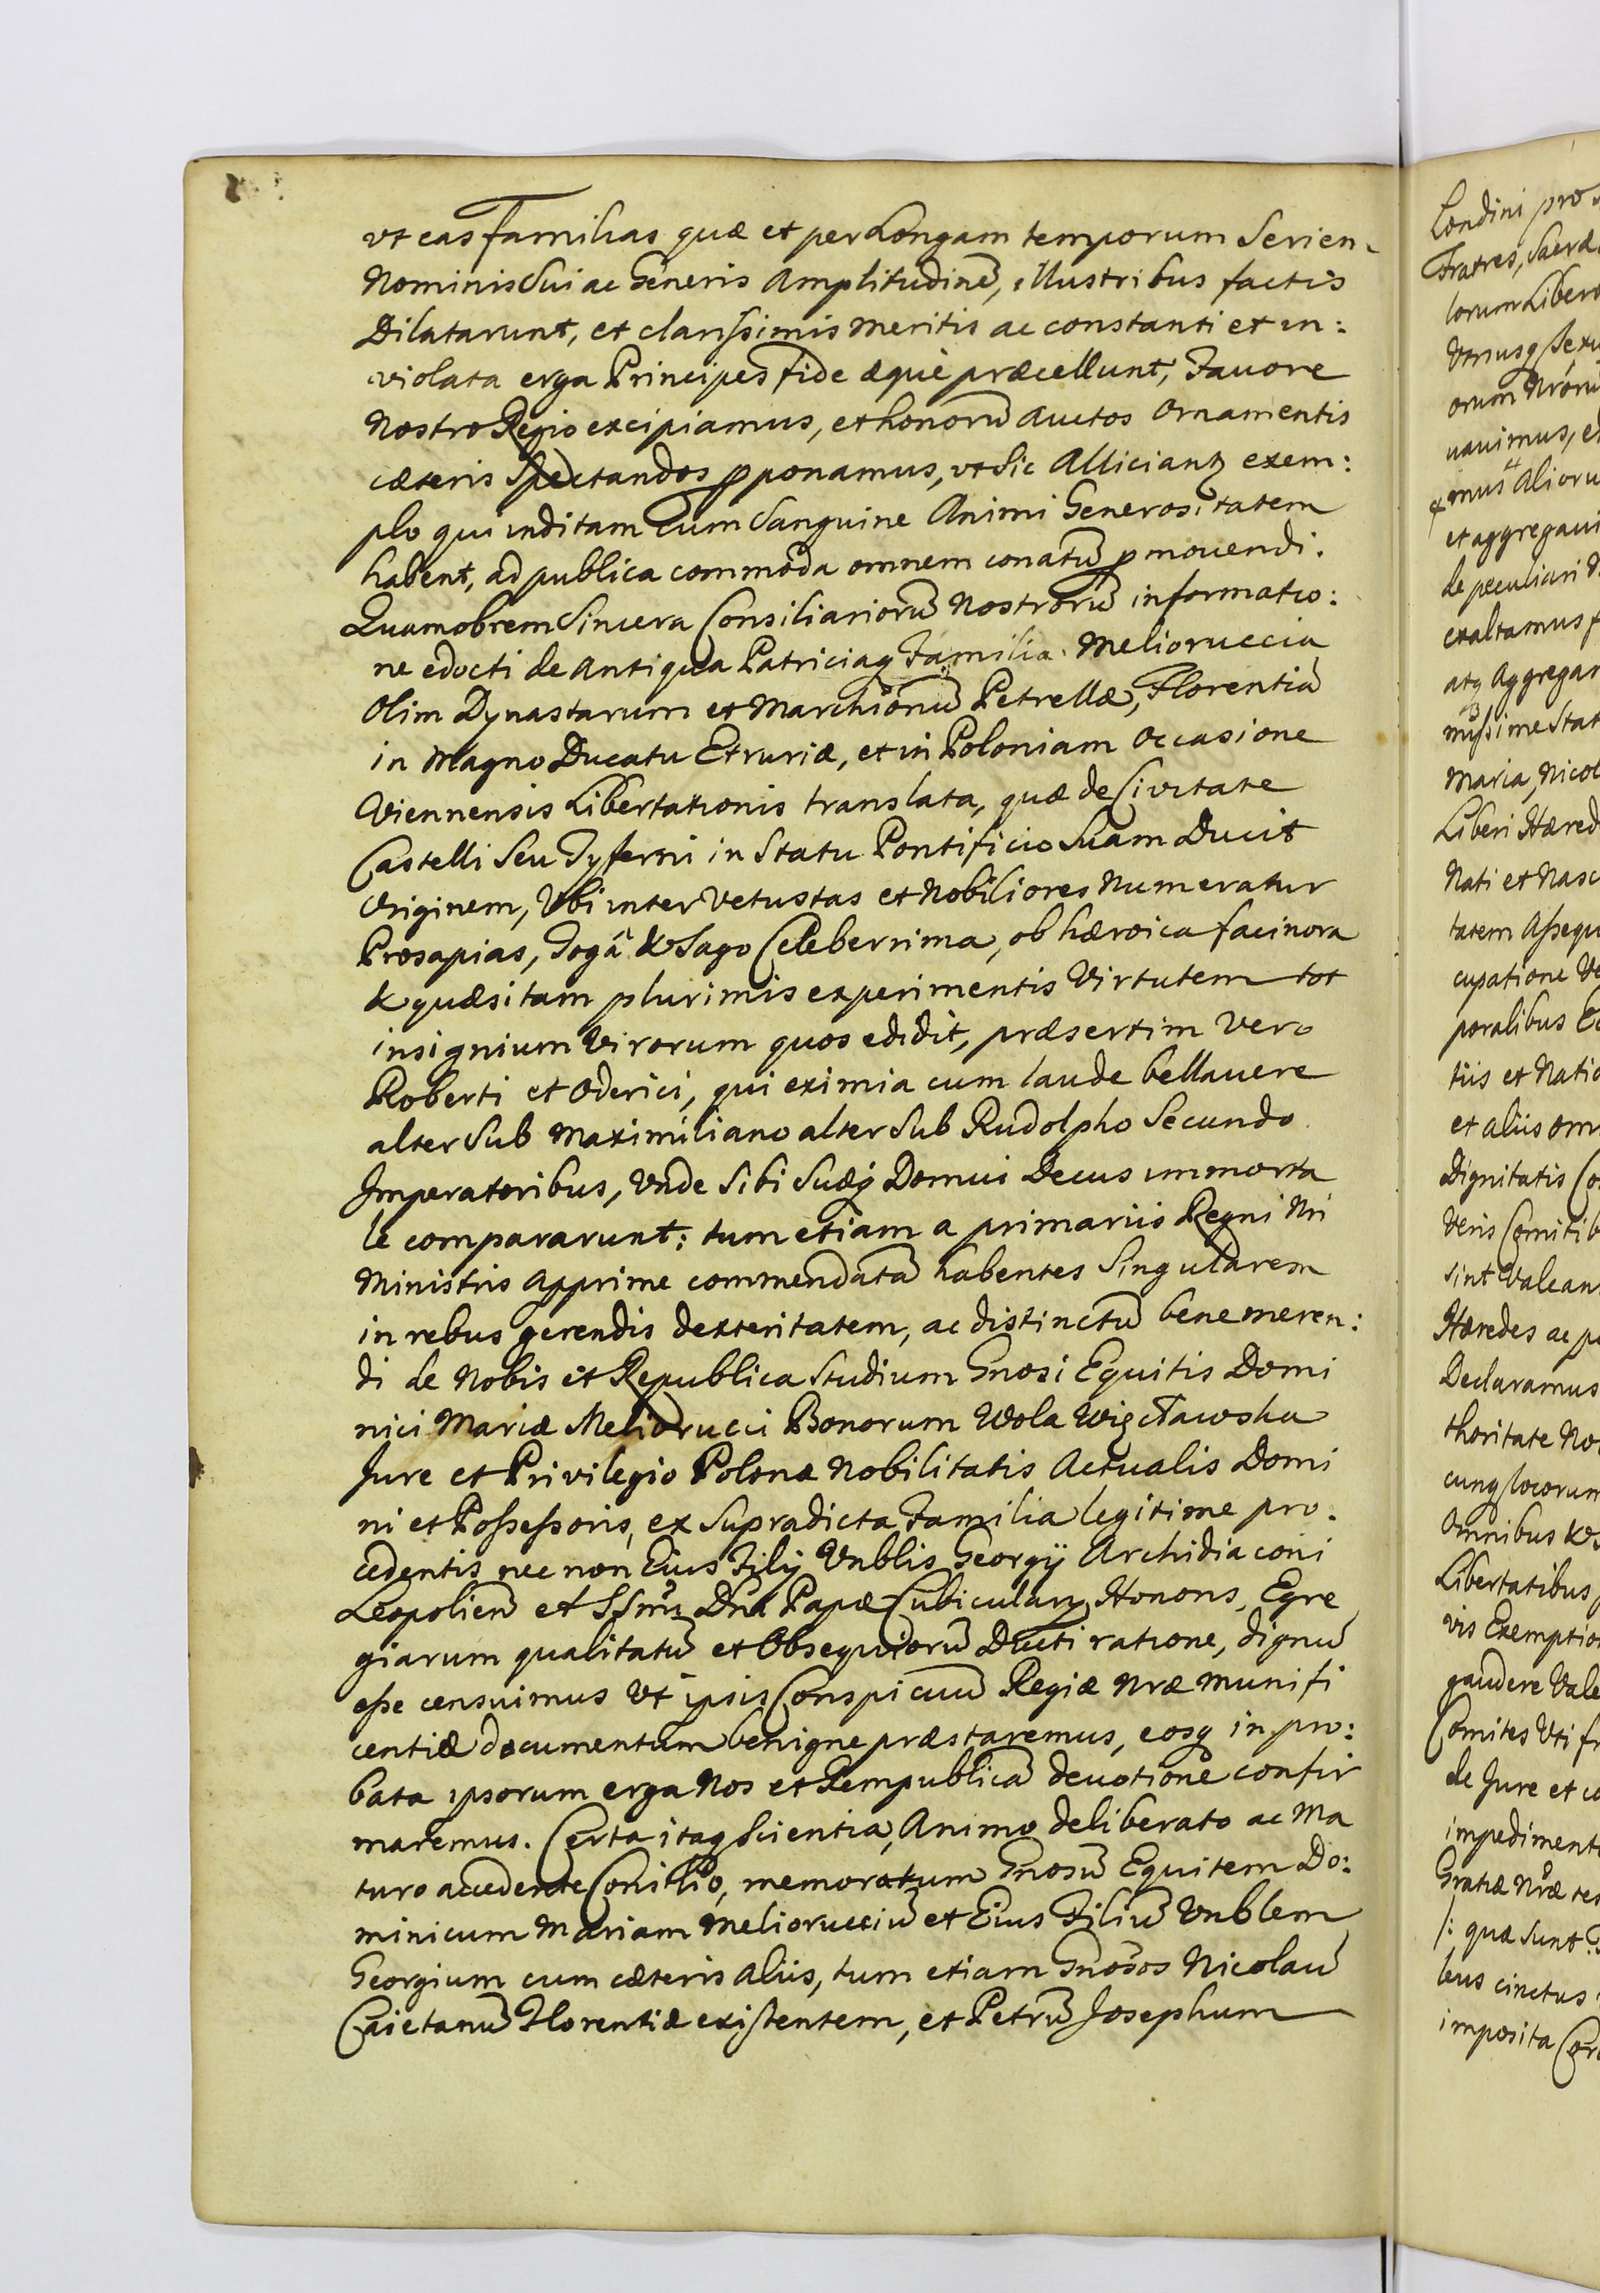 vt eas Familias quæ et per Longam temporum Serien
Nominis Sui ac Generis Amplitudinē, illustribus factis
Dilatarunt, et clarissimis meritis ac constanti et in:
violata erga Principes fide æquè præcellunt, Favore
Nostro Regio excipiamus, et honorū Auctos Ornamentis
cæteris Spectandos ꝓponamus, vt Sic Alliciantꝫ exem:
plo qui inditam cum Sanguine Animi Generositatem
habent, ad publica commoda omnem conatū ꝓmouendi.
Quamobrem Sincera Consiliariorū Nostrorū informatio:
ne edocti de Antiqua Patriciaꝗ Familia Melioruccia
Olim Dynastarum et Marchionū Petrellæ, Florentiā
in Magno Ducatu Etruriæ, et in Poloniam Occasione
Viennensis Libertationis translata, quæ de Civitate
Castelli Seu Tyferni in Statu Pontificio Suam Ducit
Originem, Vbi inter Vetustas et Nobiliores Numeratur
Prosapias, Togâ & Sago Celeberrima, ob hæroica facinora
& quæsitam plurimis experimentis Virtutem tot
insignium Virorum quos edidit, præsertim Vero
Roberti et Oderici, qui eximia cum laude bellauere
alter Sub Maximiliano alter Sub Rudolpho Secundo
Imperatoribus, Vnde Sibi Suæꝗ Domui Decus immorta
le compararunt; tum etiam a primariis Regni Nri
Ministris Apprime commendatā habentes Singularem
in rebus gerendis dexteritatem, ac distinctū bene meren:
di de Nobis et Republica Studium Gnosi Equitis Domi
nici Mariæ Meliorucci Bonorum Wola Więcławska
Jure et Privilegio Polonæ Nobilitatis Actualis Domi
ni et Possessoris, ex Supradicta Familia legitime pro:
cedentis nec non Eius Filij Vnblis Georgij Archidiaconi
Leopolien̄ et SSmi Dni Papæ Cubicularij Honoris, Egre
giarum qualitatū et Obsequiorū Ducti ratione, dignū
esse censuimus Vt ipsis Conspicuū Regiæ Nræ Munifi
centiæ documentum benigne præstaremus, eosꝗ in pro:
bata ipsorum erga Nos et Rempublicā deuotione confir
maremus. Certa itaꝗ Scientia, Animo deliberato ac Ma
turo accedente Consilio, memoratum Gnosū Equitem Do:
minicum Mariam Melioruccū et Eius Filiū Vnblem
Georgium cum cæteris Aliis, tum etiam Gnosos Nicolaū
Caietanū Florentiæ existentem, et Petrū Josephum
Londini pro
Fratres, Sacræ
lorum Libero
Vtriusꝗ Sexu
orum Nrorū
uauimus, et
mus Alioru
et aggregaui
de peculiari N
exaltamus f
atꝗ Aggregam
missime Stat
Maria, Nicol
Liberi Hæred
Nati et Nasc
tatem Assequ
cupatione Ve
poralibus Ec
tiis et Natio
et aliis om
Dignitatis Co
Veris Comitib
Sint Valean
Hæredes ac p
Declaramus
thoritate No
cunꝗ locorum
Omnibus &
Libertatibus
vis Exemptio
gaudere Vale
Comites Vti fr
de Jure et co
impediment
Gratiæ Nræ tes
/: quæ Sunt
leus cinctus
imposita Cor